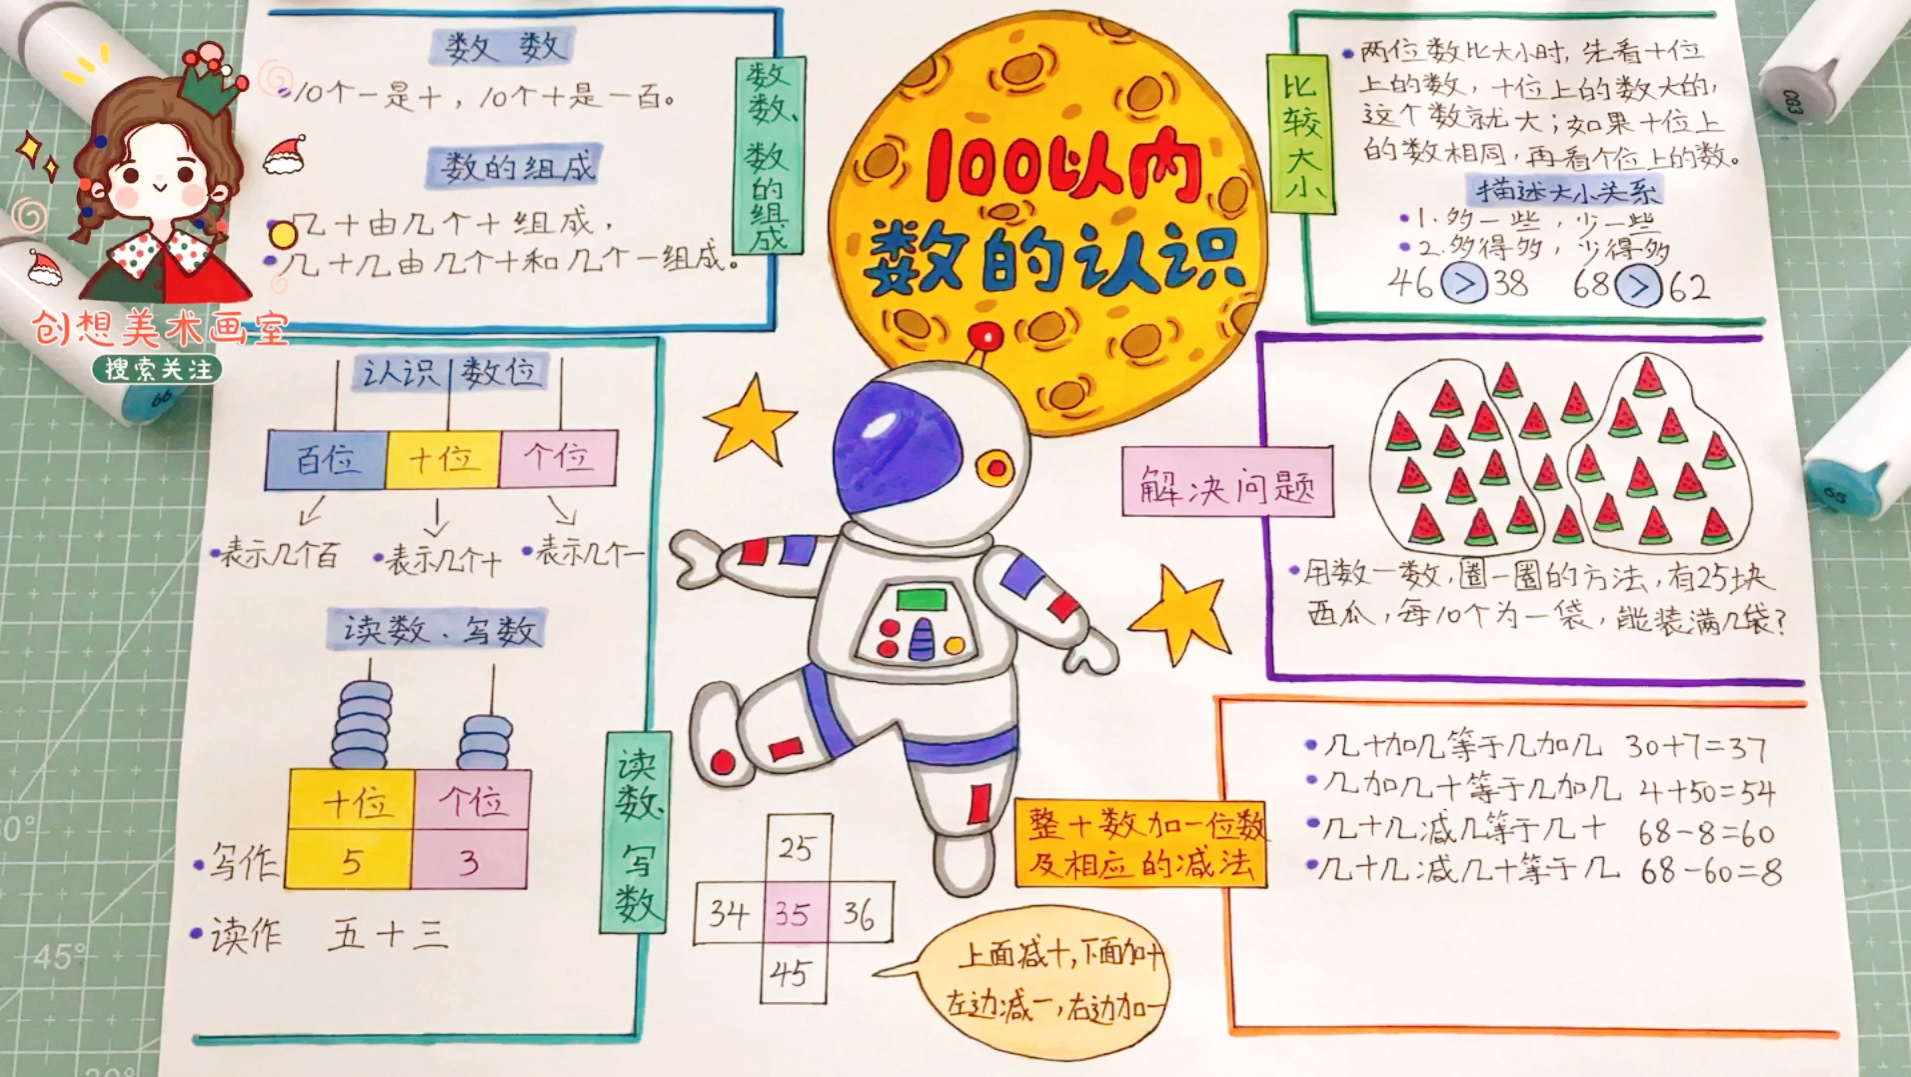 数 数
10个一是十，10个十是一百。
数的组成
几十由几个十组成，
几十几由几个十和几个一组成。
数数、数的组成
创想美术画室
搜索关注
66
100以内
数的认识
比较大小
两位数比大小时，先看十位
上的数，十位上的数大的，
这个数就大；如果十位上
的数相同，再看个位上的数。
描述大小关系
1.多一些，少一些
2.多得多，少得多
46>38 68>62
083
65
认识数位
百位 十位 个位
表示几个百 表示几个十 表示几个一
读数、写数
十位 个位
写作 5 3
读作 五十三
读数、写数
解决问题
用数一数，圈一圈的方法，有25块
西瓜，每10个为一袋，能装满几袋？
整十数加一位数
及相应的减法
几十加几等于几加几 30+7=37
几加几十等于几加几 4+50=54
几十几减几等于几十 68-8=60
几十几减几十等于几 68-60=8
25
34 35 36
45
上面减十，下面加十
左边减一，右边加一
45°